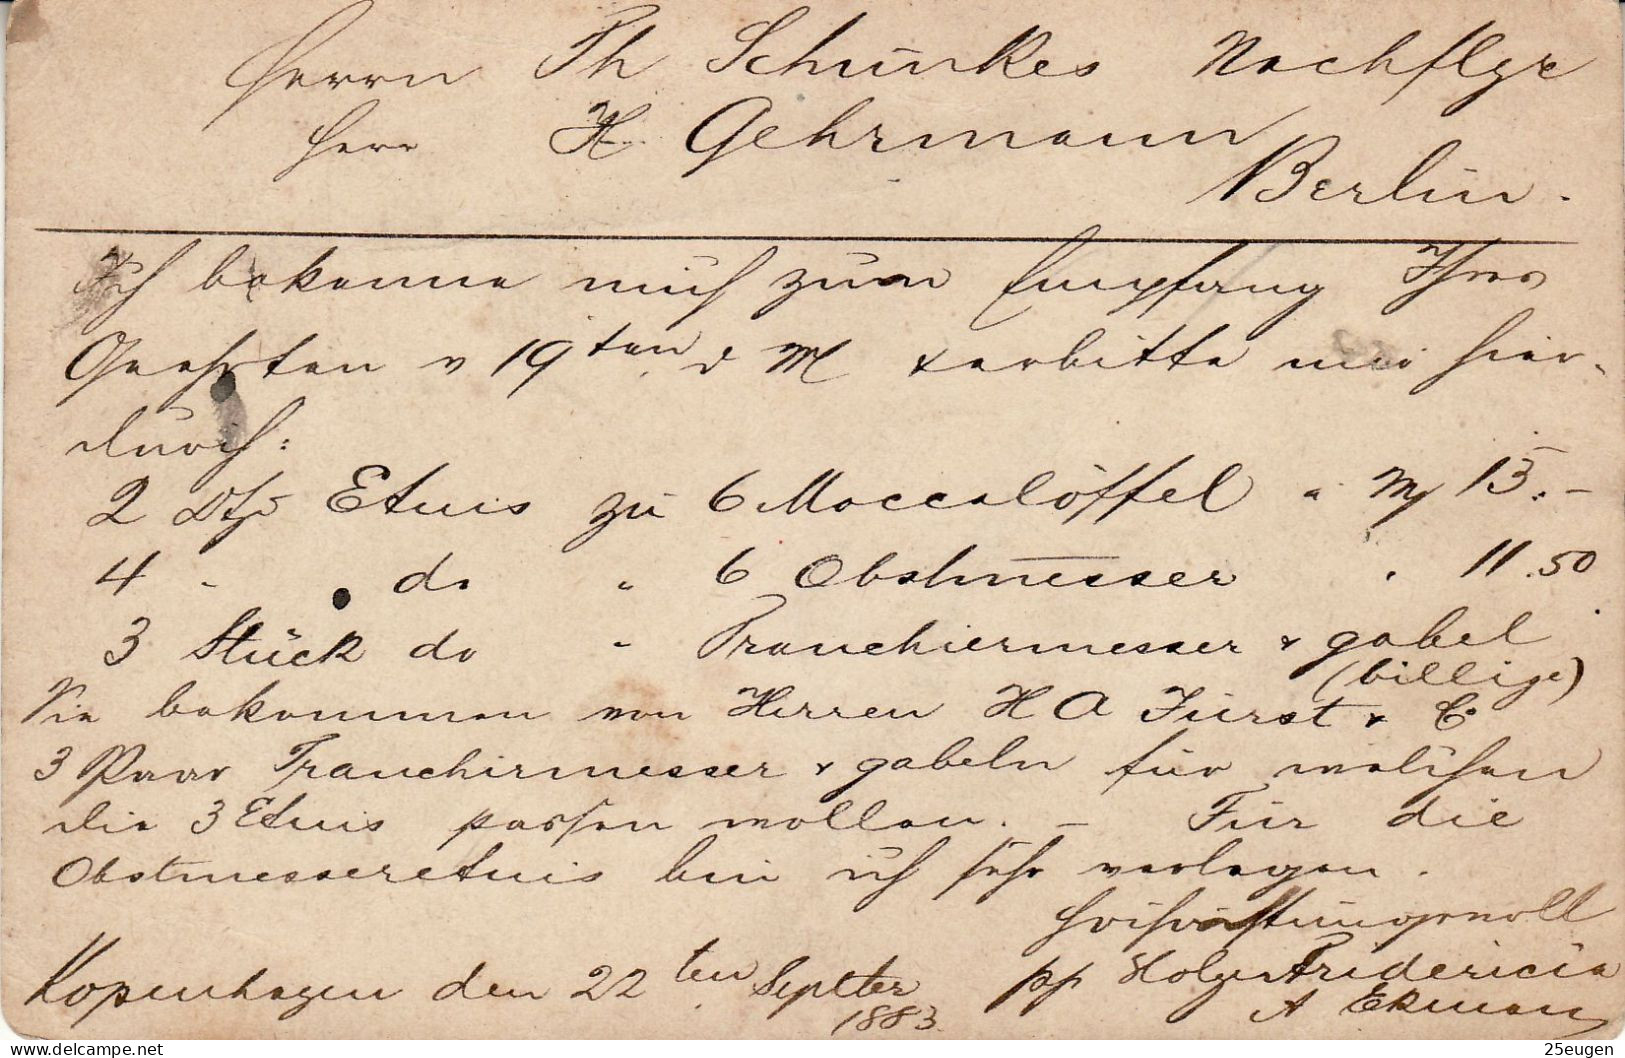 Herrn Th Schunkes Nachflgr
Herr H. Gehrmann
Berlin.
Ich bekenne mich zum Empfang Ihres
Geehrten v 19ten d M & erbitte mir hier-
durch:
2 Dtz Etuis zu 6 Moccalöffel a M 13.-
4 " do " 6 Obstmesser " 11.50
3 Stück do " Tranchiermesser & gabel
(billige)
Sie bekommen von Herren H A Fürst & Co
3 Paar Tranchirmesser & gabeln für welchen
die 3 Etuis passen wollen. - Für die
Obstmesseretuis bin ich sehr verlegen.
Hochachtungsvoll
Kopenhagen den 22ten Septber pp Holger Fridericia
1883. A Ekman
25eugen
delcampe.net